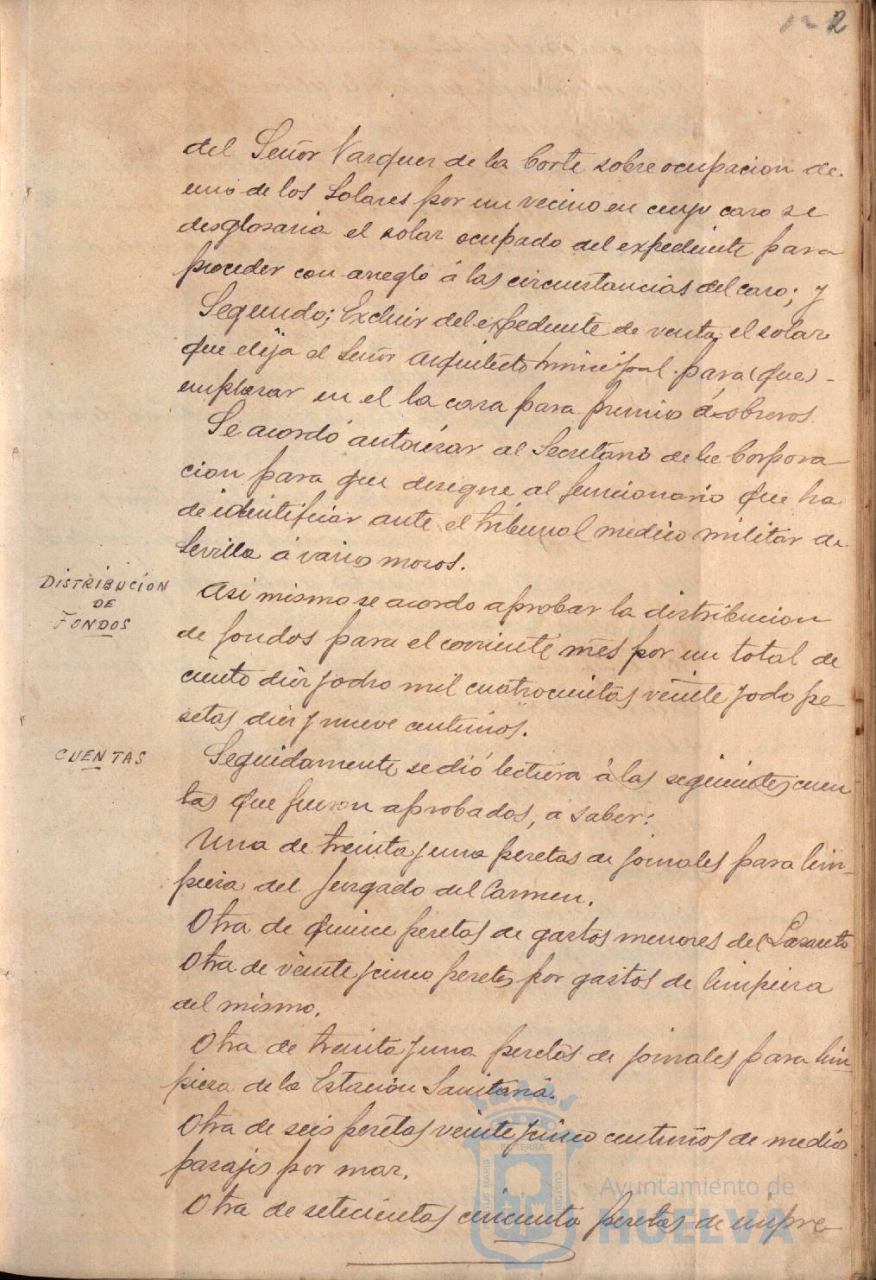 2
del Señor Vazquez de la Corte sobre ocupacion de
uno de los Solares por un vecino en cuyo caso se
desglosaria el solar ocupado del expediente para
proceder con areglo á las circunstancias del caso; y
Segundo; Excluir del expediente de venta, el solar
que elija el Señor Arquitecto Municipal para (que) -
emplazar en el la casa para premio á obreros.
Se acordó autorizar al Secretario de la Corpora-
cion para que designe al funcionario que ha
de identificar ante el tribunal medico militar de
Sevilla á varios mozos.
DISTRIBUCIÓN
DE
FONDOS
Asi mismo se acordo aprobar la distribucion
de fondos para el corriente mes por un total de
ciento diez y ocho mil cuatrocientas veinte y ocho pe-
setas diez y nueve centimos.
CUENTAS
Seguidamente se dió lectura á las siguientes cuen
tas que fueron aprobadas, a saber:
Una de treinta y una pesetas de jornales para lim-
pieza del Juzgado del Carmen.
Otra de quince pesetas de gastos menores del Lazareto
Otra de veinte y cinco pesetas por gastos de limpieza
del mismo.
Otra de treinta y una pesetas de jornales para lim
pieza de la Estación Sanitaria.
Otra de seis pesetas veinte y cinco centimos de medios
pasajes por mar.
Otra de setecientas cincuenta pesetas de impre
Ayuntamiento de
HUELVA